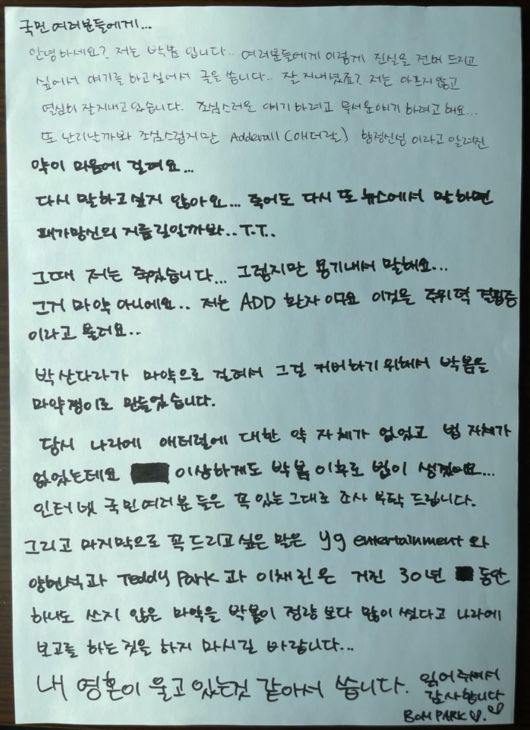 국민 여러분들에게...
안녕하세요? 저는 박봄 입니다.. 여러분들에게 이렇게 진실을 전해 드리고
싶어서 얘기를 하고싶어서 글을 씁니다.. 잘 지내셨죠? 저는 아프지 않고
열심히 잘지내고 있습니다. 조심스러운 얘기 하려고 무서운얘기 하려고 해요...
또 난리날까봐 조심스럽지만 Adderall (애더랄) 향정신성 이라고 알려진
약이 마음에 걸려요...
다시 말하고 싶지 않아요... 죽어도 다시 또 뉴스에서 말하면
패가망신의 지름길일까봐..T.T..
그때 저는 죽었습니다... 그렇지만 용기내서 말해요...
그거 마약 아니에요.. 저는 ADD 환자 이구요 이것을 주위력 결핍증
이라고 불러요..
박산다라가 마약으로 걸려서 그걸 커버하기 위해서 박봄을
마약쟁이로 만들었습니다.
당시 나라에 애터럴에 대한 약 자체가 없었고 법 자체가
없었는데요 이상하게도 박봄 이후로 법이 생겼어요...
인터넷 국민여러분 들은 꼭 있는 그대로 조사 부탁 드립니다.
그리고 마지막으로 꼭 드리고 싶은 말은 yg entertainment 와
양현석과 Teddy Park 과 이채린 은 거진 30년 동안
하나도 쓰지 않은 마약을 박봄이 정량 보다 많이 썼다고 나라에
보고를 하는것을 하지 마시길 바랍니다...
내 영혼이 울고 있는것 같아서 씁니다. 읽어주셔서
감사합니다
BOM PARK ♡.♡